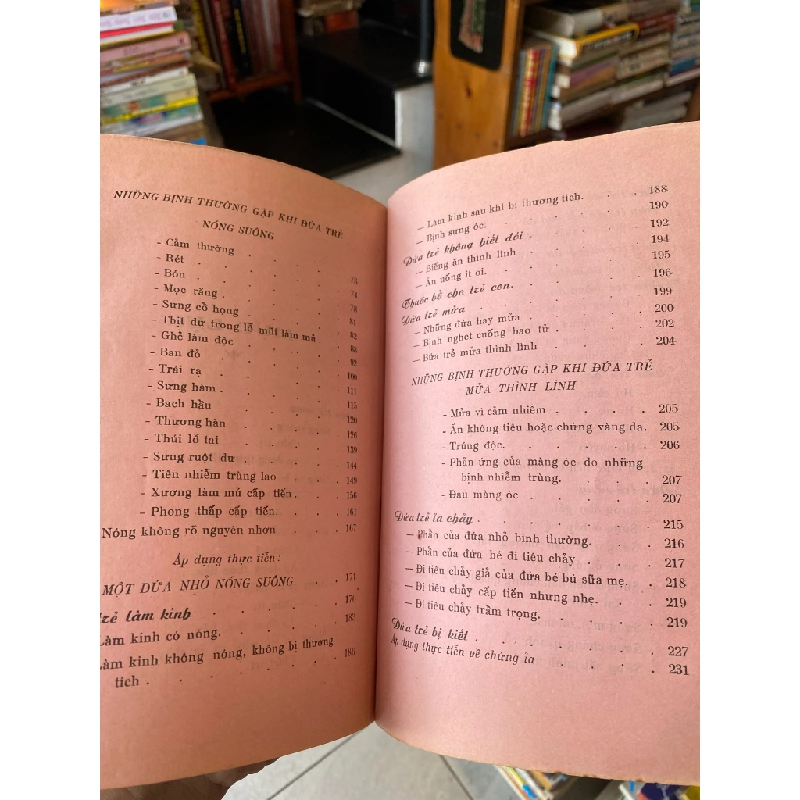 NHỮNG BỊNH THƯỜNG GẶP KHI ĐỨA TRẺ
NÓNG SUÔNG
- Cảm thường
- Rét
- Bón 73
- Mọc răng 74
- Sưng cổ họng 78
- Thịt dư trong lỗ mũi làm mủ 81
- Ghẻ làm độc 82
- Ban đỏ 88
- Trái rạ 92
- Sưng hàm 106
- Bạch hầu 111
- Thương hàn 115
- Thúi lỗ tai 120
- Sưng ruột dư 126
- Tiêm nhiễm trùng lao 139
- Xương làm mủ cấp tiến 144
- Phong thấp cấp tiến 149
Nóng không rõ nguyên nhơn 156
161
167
Áp dụng thực tiễn:
MỘT ĐỨA NHỎ NÓNG SUÔNG 171
trẻ làm kinh 176
Làm kinh có nóng. 182
Làm kinh không nóng, không bị thương
tích 185
— Làm kinh sau khi bị thương tích. 188
— Bịnh sưng óc. 190
Đứa trẻ không biết đói 192
— Biếng ăn thình lình 194
— Ăn uống ít ỏi. 195
Thuốc bổ cho trẻ con. 196
Đứa trẻ mửa 199
— Những đứa hay mửa 200
— Bịnh nghẹt cuống bao tử 202
— Đứa trẻ mửa thình lình 204
NHỮNG BỊNH THƯỜNG GẶP KHI ĐỨA TRẺ
MỬA THÌNH LÌNH
- Mửa vì cảm nhiễm 205
- Ăn không tiêu hoặc chứng vàng da. 205
- Trúng độc. 206
- Phản ứng của màng óc do những
bịnh nhiễm trùng. 207
- Đau màng óc 207
Đứa trẻ ỉa chảy 215
— Phân của đứa nhỏ bình thường. 216
— Phân của đứa bé đi tiêu chảy 217
— Đi tiêu chảy giả của đứa bé bú sữa mẹ. 218
— Đi tiêu chảy cấp tiến nhưng nhẹ. 219
— Đi tiêu chảy trầm trọng. 219
Đứa trẻ bị kiết 227
Áp dụng thực tiễn về chứng ỉa 231